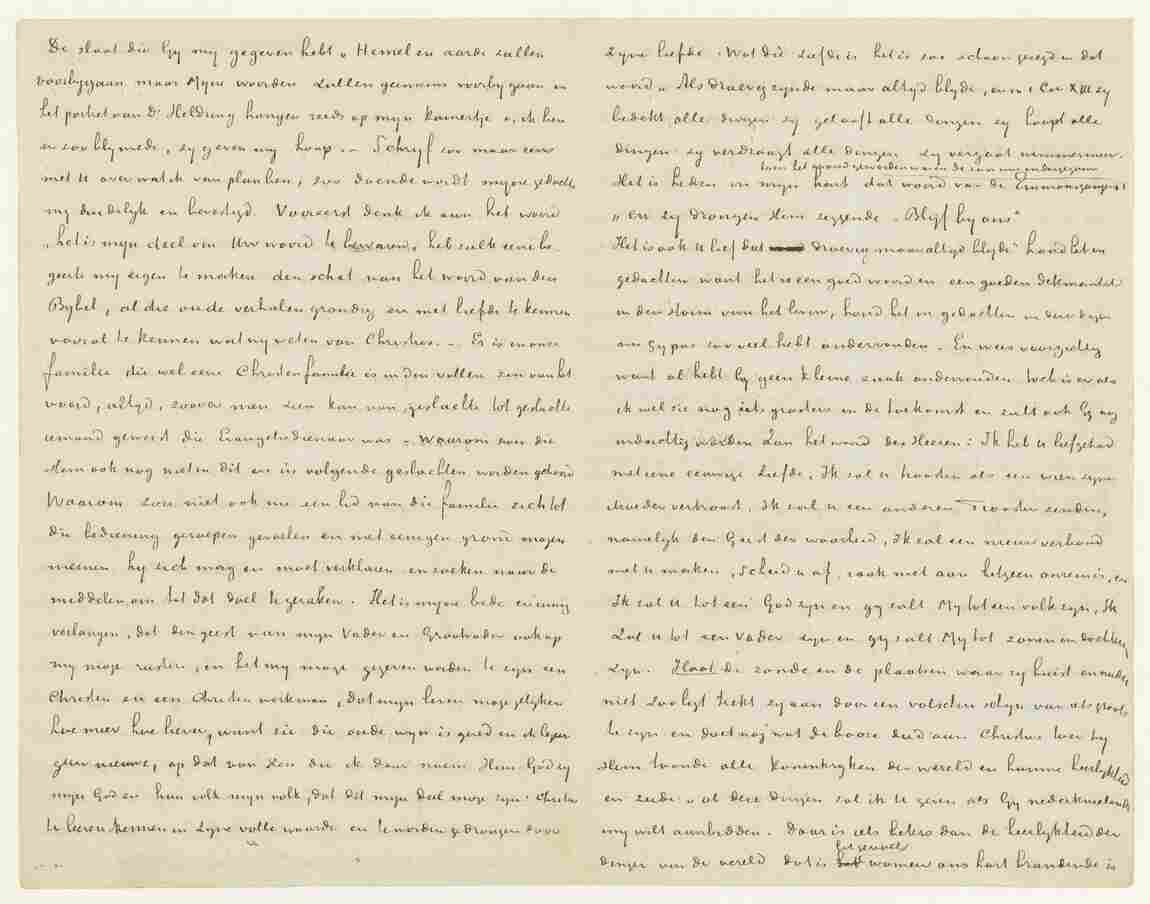 De plaat die Gy my gegeven hebt „Hemel en aarde zullen
voorbygaan maar Myne woorden zullen geenszins voorby gaan en
het portret van Ds Heldring hangen reeds op myn kamertje o, ik ben
er zoo bly mede, zy geven my hoop. – Schryf zoo maar eens
met U over wat ik van plan ben, zoo doende wordt myne gedachte
my duidelyk en bevestigd. Vooreerst denk ik aan het woord
„het is myn deel om Uw woord te bewaren", heb zulk eene be-
geerte my eigen te maken den schat van het woord van den
Bybel, al die oude verhalen grondig en met liefde te kennen
vooral te kennen wat wy weten van Christus. – Er is in onze
familie die wel eene Christenfamilie is in den vollen zin van het
woord, altyd, zoover men zien kan van geslachte tot geslachte
iemand geweest die Evangeliedienaar was. – Waarom zou die
stem ook nog niet in dit en in volgende geslachten worden gehoord
Waarom zou niet ook nu een lid van die familie zich tot
die bediening geroepen gevoelen en met eenigen grond mogen
meenen hy zich mag en moet verklaren en zoeken naar de
middelen, om tot dat doel te geraken. Het is myne bede en innig
verlangen, dat den geest van myn Vader en Grootvader ook op
my moge rusten, en het my moge gegeven worden te zyn een
Christen en een Christen werkman, dat myn leven moge gelyken
hoe meer hoe liever, want zie die oude wyn is goed en ik begeer
geen nieuwe, op dat van Hen die ik daar noem Hun God zy
myn God en hun volk myn volk, dat dit myn deel moge zyn: Christus
te leeren kennen in Zyne volle waarde en te worden gedrongen door
Zyne liefde. Wat die Liefde is het is zoo schoon gezegd in dat
woord „Als droevig zynde maar altyd blyde, en in 1 Cor XIII zy
bedekt alle dingen zy gelooft alle dingen zy hoopt alle
dingen zy verdraagt alle dingen zy vergaat nimmermeer.
toen het avond geworden was en de zon was ondergegaan
Het is heden in myn hart dat woord van de Emmausgangers:
„en zy drongen Hem zeggende „Blyf by ons"
Het is ook U lief dat droevig maar altyd blyde" houd het in
gedachten want het is een goed woord en een goeden dekmantel
in den storm van het leven, houd het in gedachten in deze dagen
nu Gy pas zoo veel hebt ondervonden. En wees voorzichtig
want al hebt Gy geen kleine zaak ondervonden toch is er als
ik wel zie nog iets grooters in de toekomst en zult ook Gy nog
indachtig worden aan het woord des Heeren: Ik heb U liefgehad
met eene eeuwige liefde, Ik zal U troosten als een wien zyne
Moeder vertroost. Ik zal U een anderen Trooster zenden,
namelyk den Geest der waarheid, Ik zal een nieuw verbond
met U maken, Scheid U af, raak niet aan hetgeen onrein is, en
Ik zal U tot een God zyn en gy zult My tot een volk zyn, Ik
Zal U tot een Vader zyn en gy zult My tot zonen en dochteren
zyn. Haat de zonde en de plaatsen waar zy huist en
niet zoo ligt trekt zy aan door een valschen schyn van iets groots
te zyn en doet nog wat de booze deed aan Christus toen hy
Hem toonde alle Koninkryken der wereld en hunne heerlykheid
en zeide „al deze dingen zal ik U geven als Gy nederknielende
my wilt aanbidden. Daar is iets beters dan de heerlykheid der
het gevoel
dingen van de wereld dat is wanneer ons hart brandende is